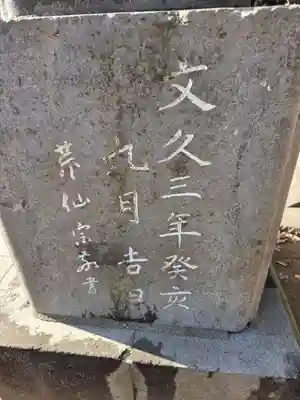 文久三年癸亥
九月吉日
仙宗敬書